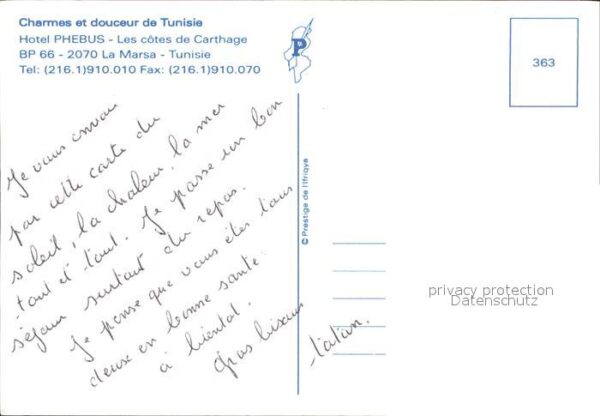 Charmes et douceur de Tunisie
Hotel PHEBUS - Les côtes de Carthage
BP 66 - 2070 La Marsa - Tunisie
Tel: (216.1)910.010 Fax: (216.1)910.070
P
363
Je vous envoie
par cette carte du
soleil, la chaleur, la mer
tout et tout. Je passe un bon
séjour surtout du repos.
Je pense que vous êtes tous
deux en bonne santé
à bientot.
Gros bisous
tatan.
© Prestige de l'Ifriqya
privacy protection
Datenschutz